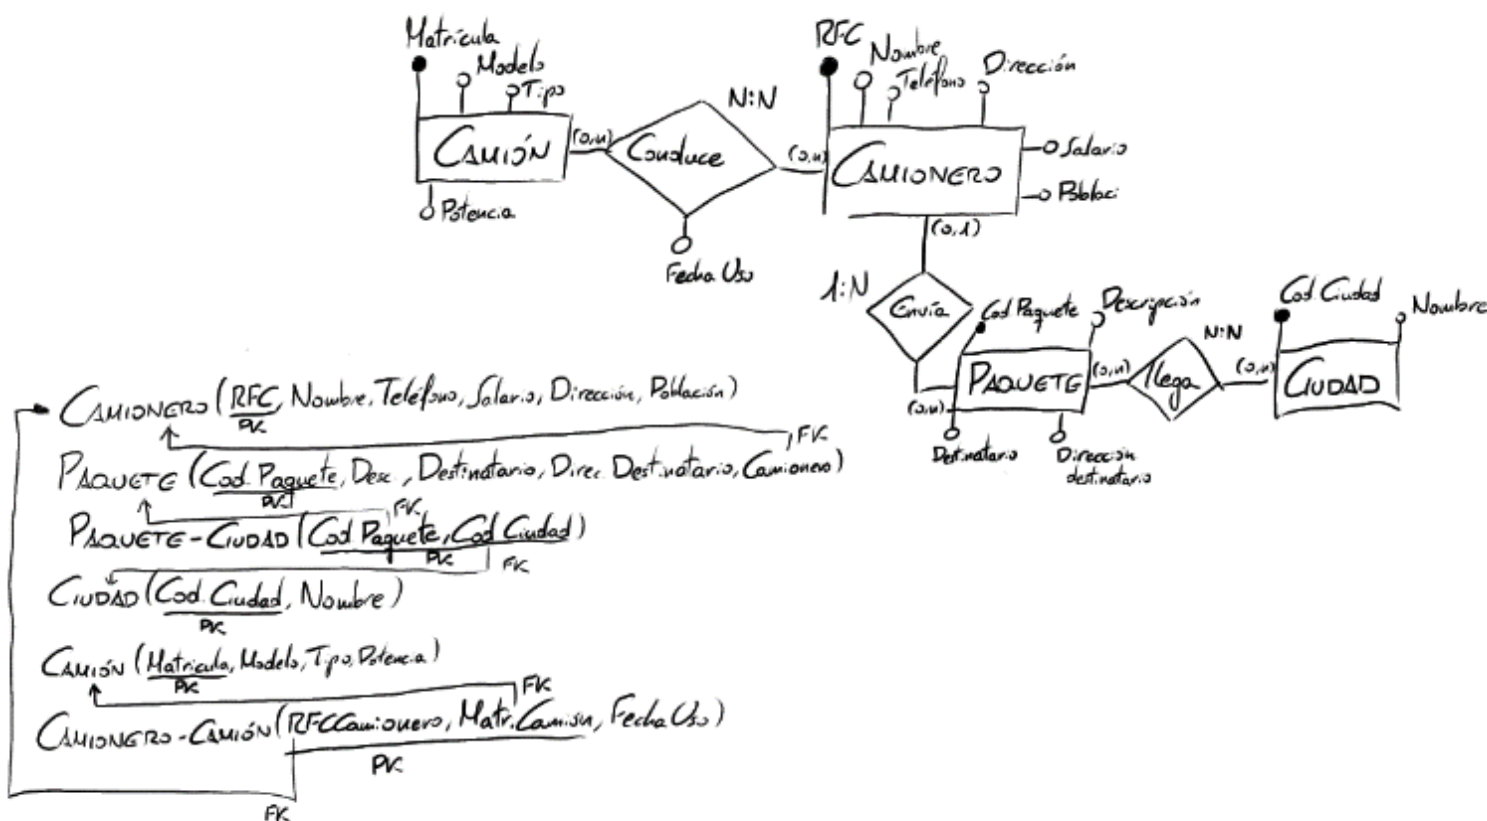 Matrícula
Modelo
Tipo
CAMIÓN
Potencia
(0,n)
Conduce
N:N
(0,n)
Fecha Uso
RFC
Nombre
Teléfono
Dirección
CAMIONERO
Salario
Poblaci
(0,1)
1:N
Envía
(0,n)
Cod Paquete
Descripción
PAQUETE
Destinatario
Dirección
destinatario
(0,n)
N:N
llega
(0,n)
Cod. Ciudad
Nombre
CIUDAD
CAMIONERO (RFC, Nombre, Teléfono, Salario, Dirección, Población)
PK
FK
PAQUETE (Cod. Paquete, Desc, Destinatario, Direc. Destinatario, Camionero)
PK
FK
PAQUETE-CIUDAD (Cod Paquete, Cod. Ciudad)
PK
FK
CIUDAD (Cod. Ciudad, Nombre)
PK
CAMIÓN (Matricula, Modelo, Tipo, Potencia)
PK
FK
CAMIONERO-CAMIÓN (RFCCamionero, Matr.Camión, Fecha Uso)
PK
FK